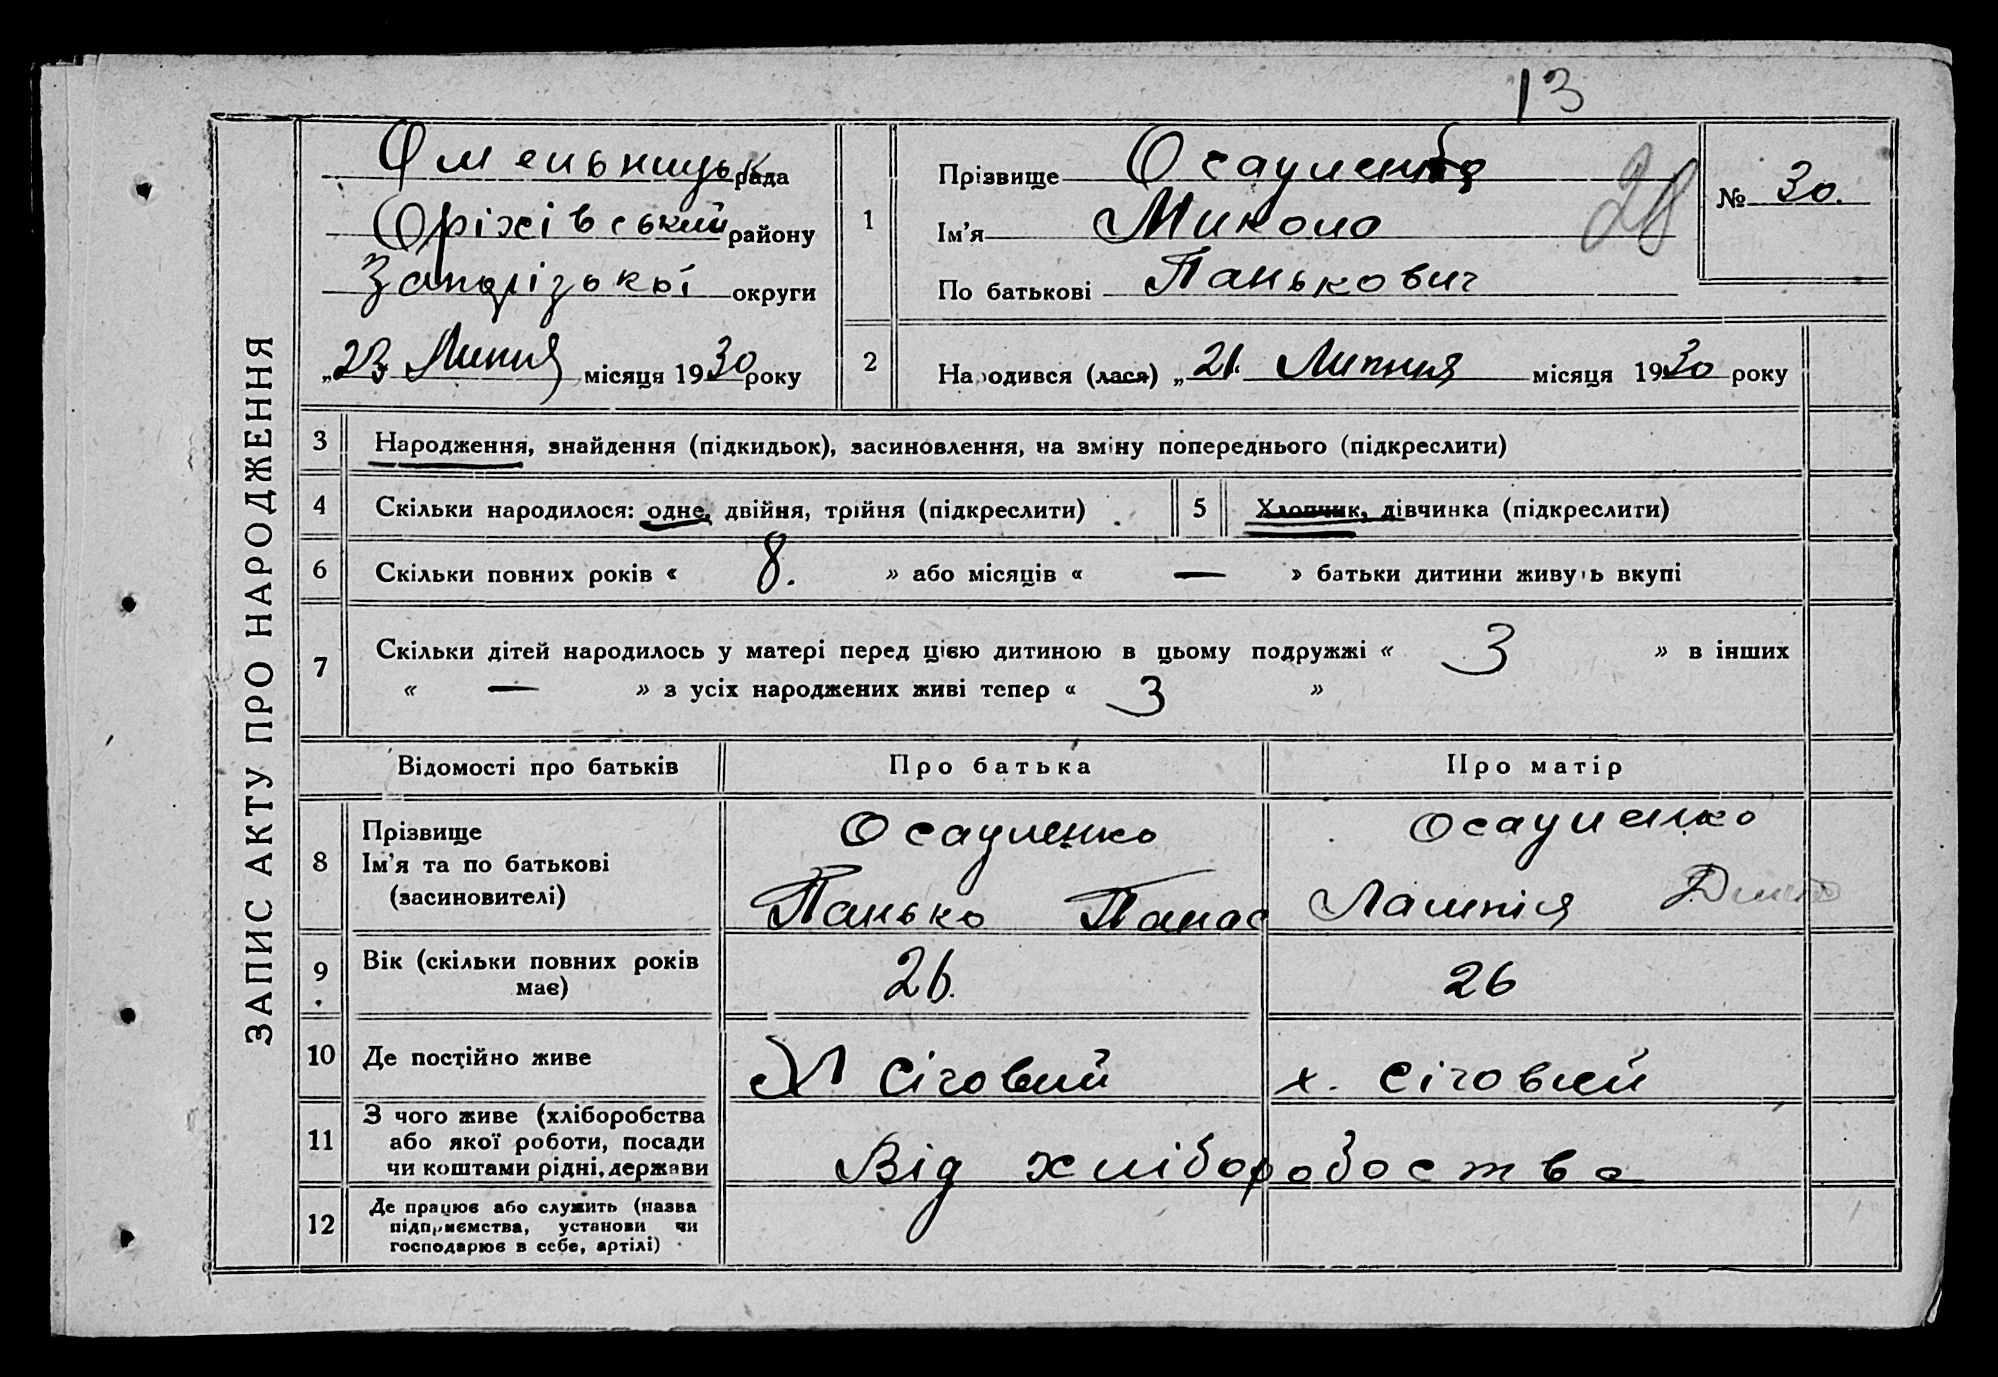 13
ЗАПИС АКТУ ПРО НАРОДЖЕННЯ
Омельницьк рада
Оріхівський району
Запорізької округи
„23 Липня місяця 1930 року
1
Прізвище Осауленко
Ім'я Микола
По батькові Панькович
28
№ 30.
2
Народився (лася) „21. Липня місяця 1930 року
3 Народження, знайдення (підкидьок), засиновлення, на зміну попереднього (підкреслити)
4 Скільки народилося: одне, двійня, трійня (підкреслити)
5 Хлопчик, дівчинка (підкреслити)
6 Скільки повних років « 8. » або місяців « — » батьки дитини живуть вкупі
7 Скільки дітей народилось у матері перед цією дитиною в цьому подружжі « 3 » в інших
« — » з усіх народжених живі тепер « 3 »
Відомості про батьків Про батька Про матір
8 Прізвище Осауленко Осауленко
Ім'я та по батькові
(засиновителі) Панько Панас Лампія
9 Вік (скільки повних років
має) 26. 26
10 Де постійно живе Х Січовий х. Січовий
11 З чого живе (хліборобства
або якої роботи, посади
чи коштами рідні, держави
Від хліборобоства
12 Де працює або служить (назва
підприємства, установи чи
господарює в себе, артілі)